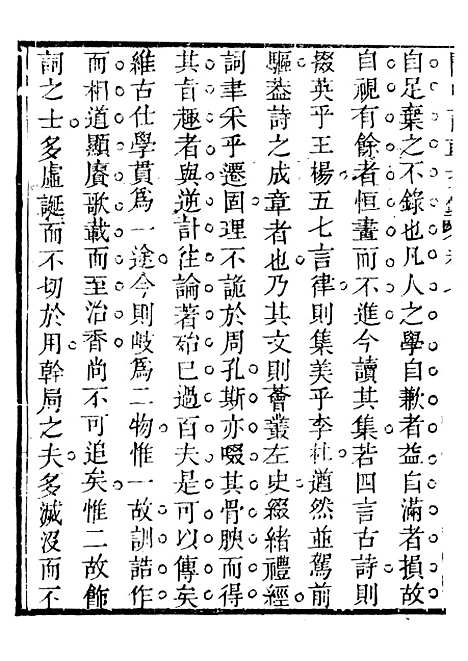 自足棄之不錄也凡人之學自歉者益自滿者損故
自視有餘者恒畫而不進今讀其集若四言古詩則
掇英乎王楊五七言律則集美乎李杜遒然並駕前
驅葢詩之成章者也乃其文則薈叢左史綴緒禮經
詞聿采乎遷固理不詭於周孔斯亦啜其骨腴而得
其旨趣者與逆計徃論著殆已過百夫是可以傳矣
維古仕學貫爲一途今則岐爲二物惟一故訓誥作
而相道顯賡歌載而至治香尚不可追矣惟二故飾
詞之士多虛誕而不切於用幹局之夫多滅沒而不